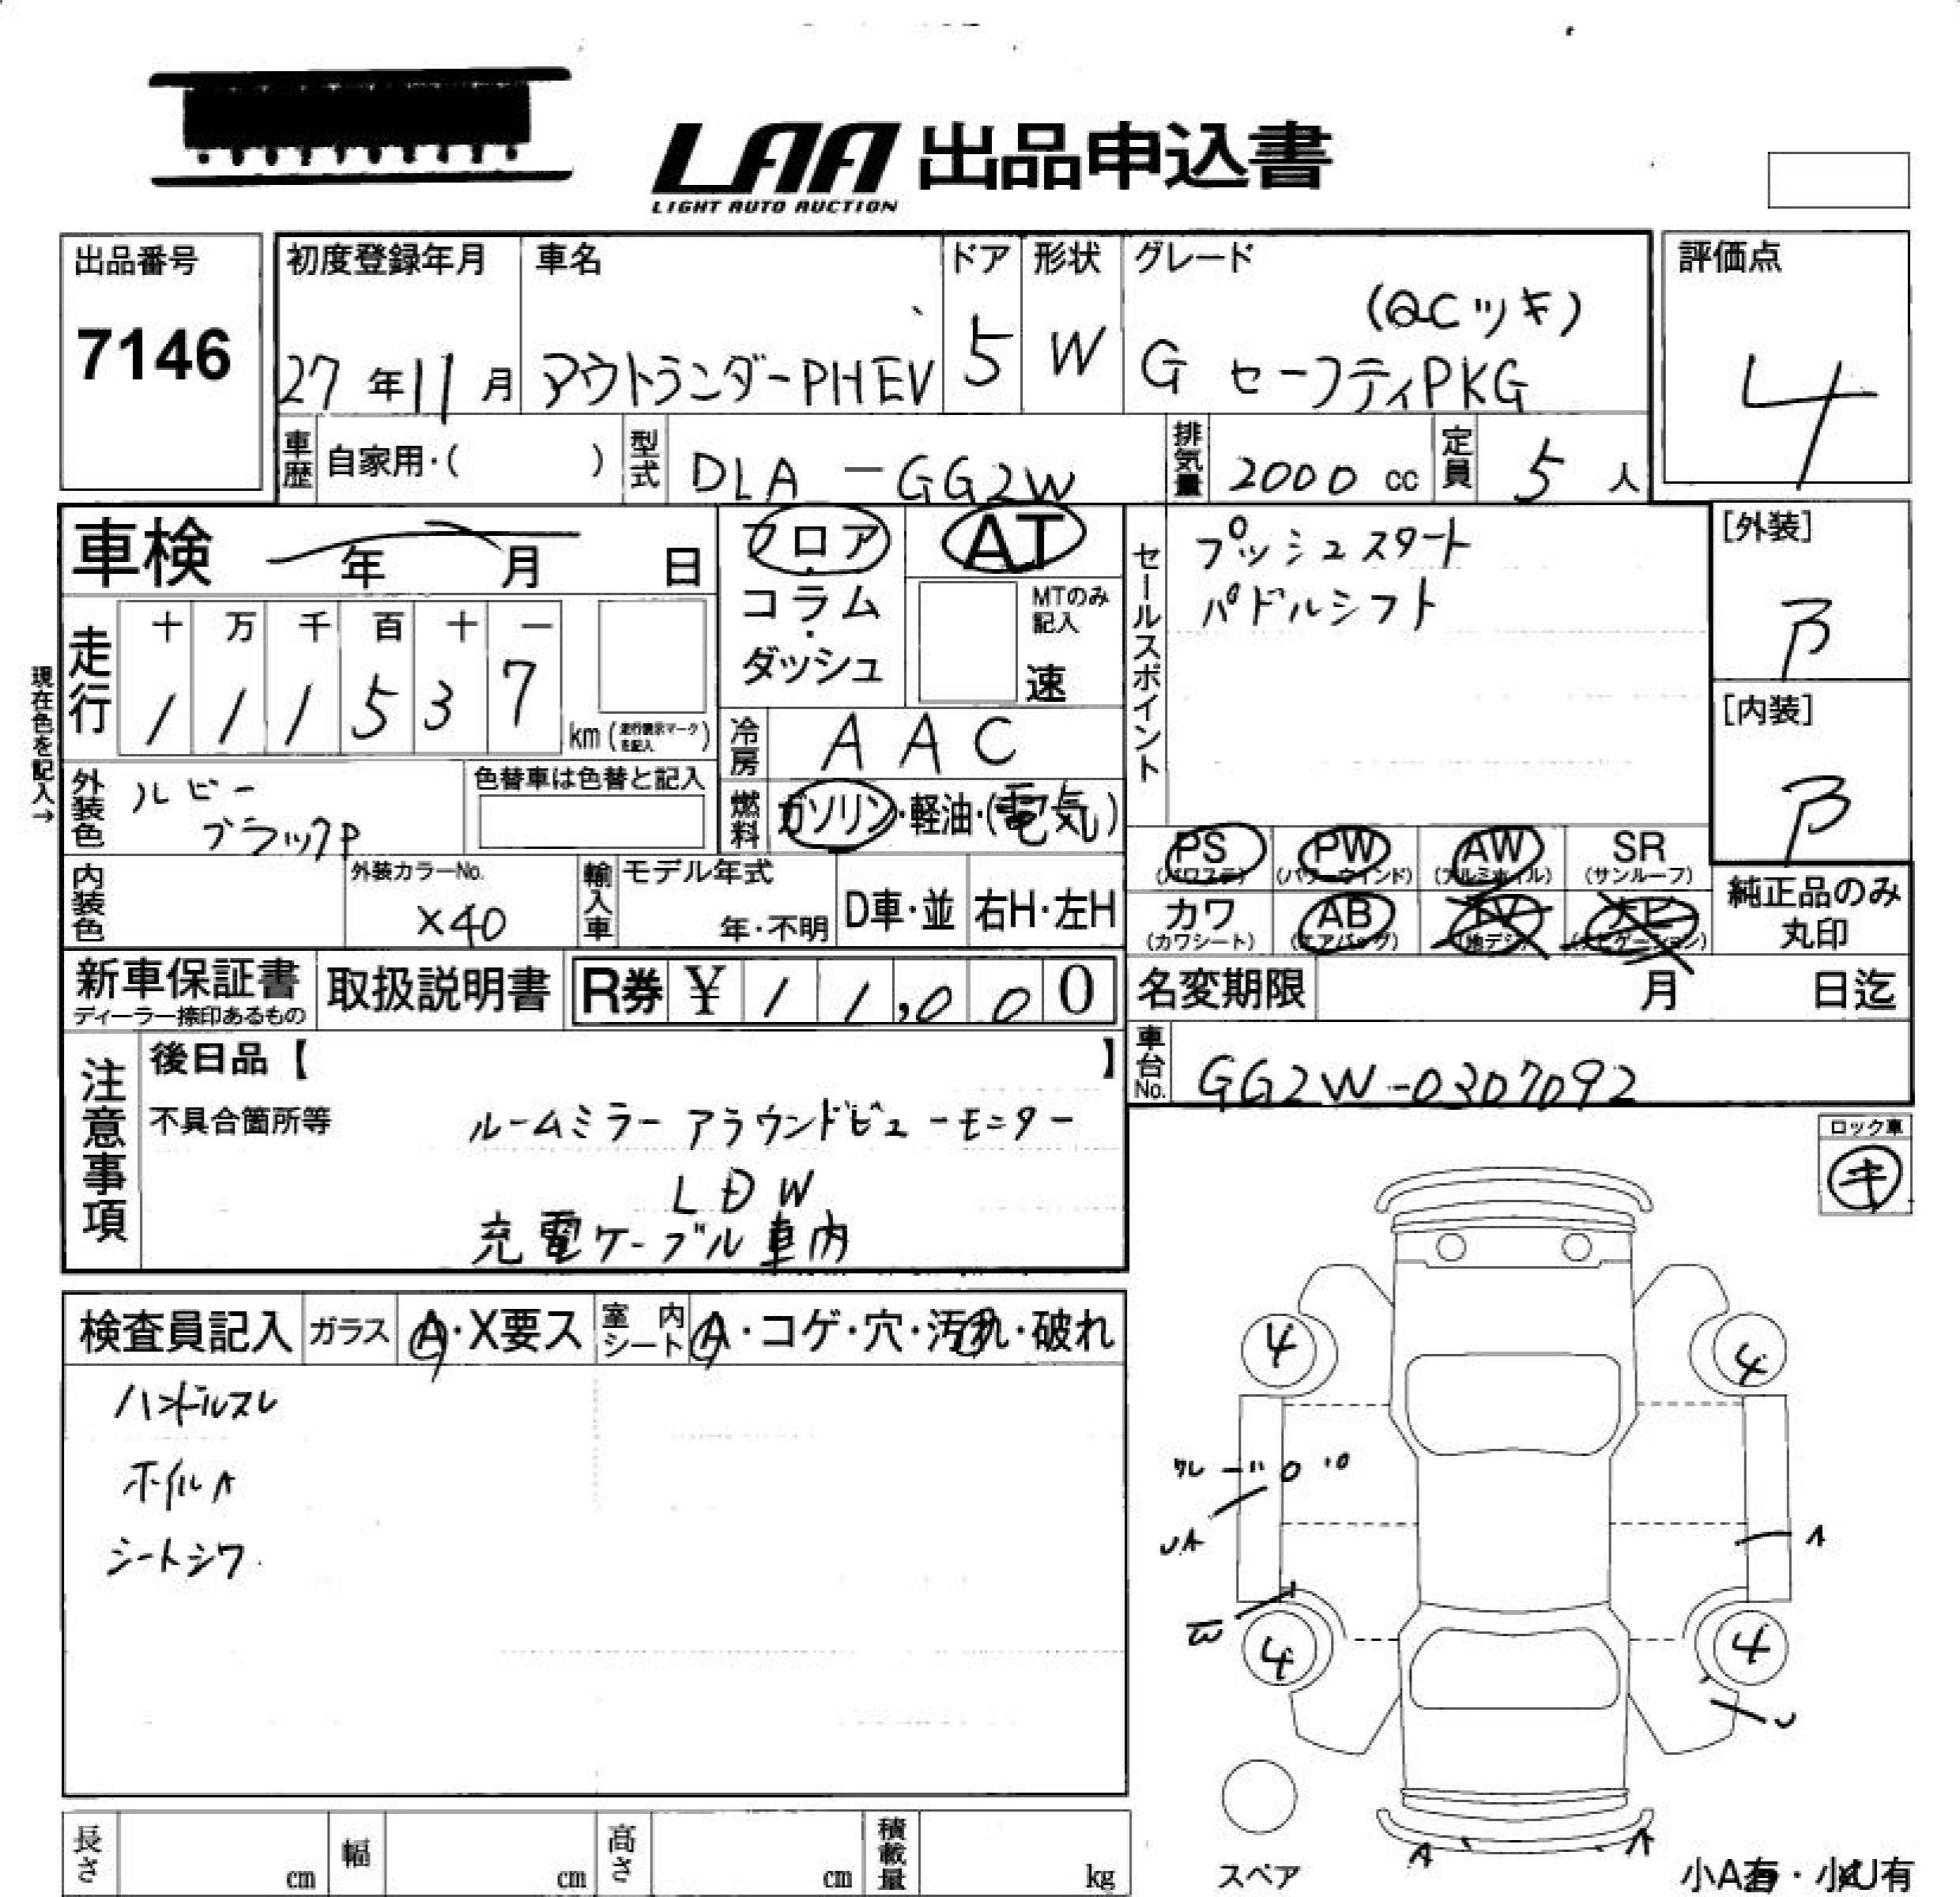 LAA 出品申込書
LIGHT AUTO AUCTION
出品番号
7146
初度登録年月
27年11月
車名
アウトランダーPHEV
ドア
5
形状
W
グレード
(QCツキ)
G セーフティPKG
評価点
4
車歴 自家用・( )
型式 DLA-GG2W
排気量 2000 cc
定員 5 人
車検 年 月 日
フロア
・
コラム
・
ダッシュ
AT
MTのみ
記入
速
セールスポイント
プッシュスタート
パドルシフト
[外装]
B
[内装]
B
現在色を記入→
走行
十 万 千 百 十 一
1 1 1 5 3 7
km (走行表示マークを記入)
冷房 AAC
外装色 ルビー
ブラックP
色替車は色替と記入
燃料 ガソリン・軽油・(電気)
PS PW AW SR
(パワステ) (パワーウインド) (アルミホイル) (サンルーフ)
カワ AB TV ナビ
(カワシート) (エアバッグ) (地デジ) (ナビゲーション)
純正品のみ
丸印
内装色
外装カラーNo.
X40
輸入車
モデル年式
年・不明
D車・並
右H・左H
新車保証書
ディーラー捺印あるもの
取扱説明書
R券 ¥ 11,000
名変期限 月 日迄
車台No. GG2W-0307092
注意事項
後日品【 】
不具合箇所等
ルームミラー アラウンドビューモニター
LDW
充電ケーブル車内
ロック車
キ
検査員記入
ガラス A・X要ス
室内シート A・コゲ・穴・汚れ・破れ
ハンドルスレ
ホイルA
シートシワ
4 4
UA
A
W
4 4
U
A A
スペア
小A有・小U有
長さ cm
幅 cm
高さ cm
積載量 kg